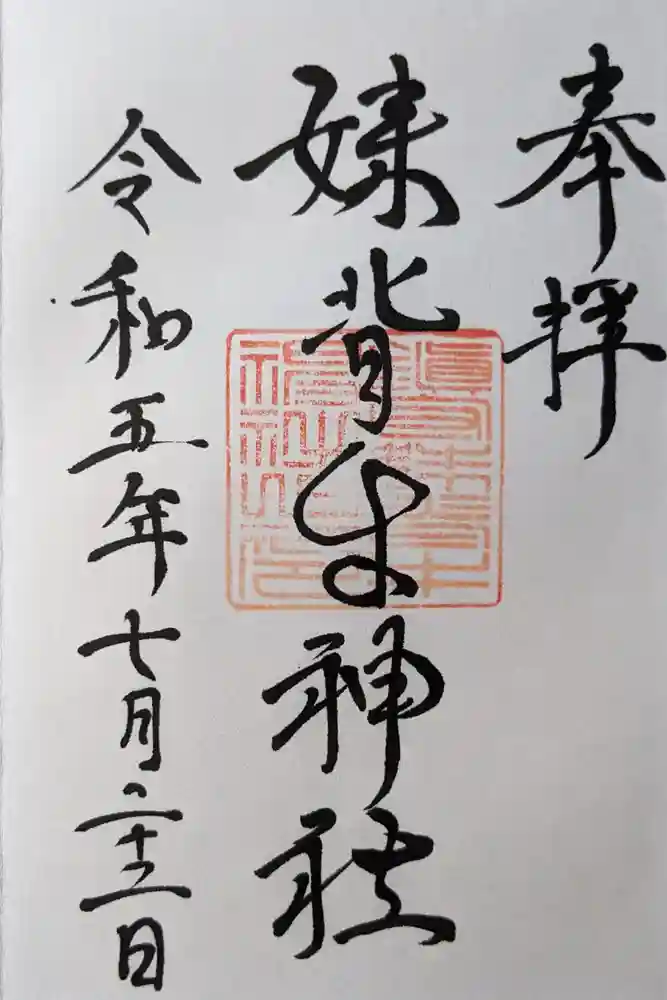 奉拝
妹背牛神社
令和五年七月二十三日